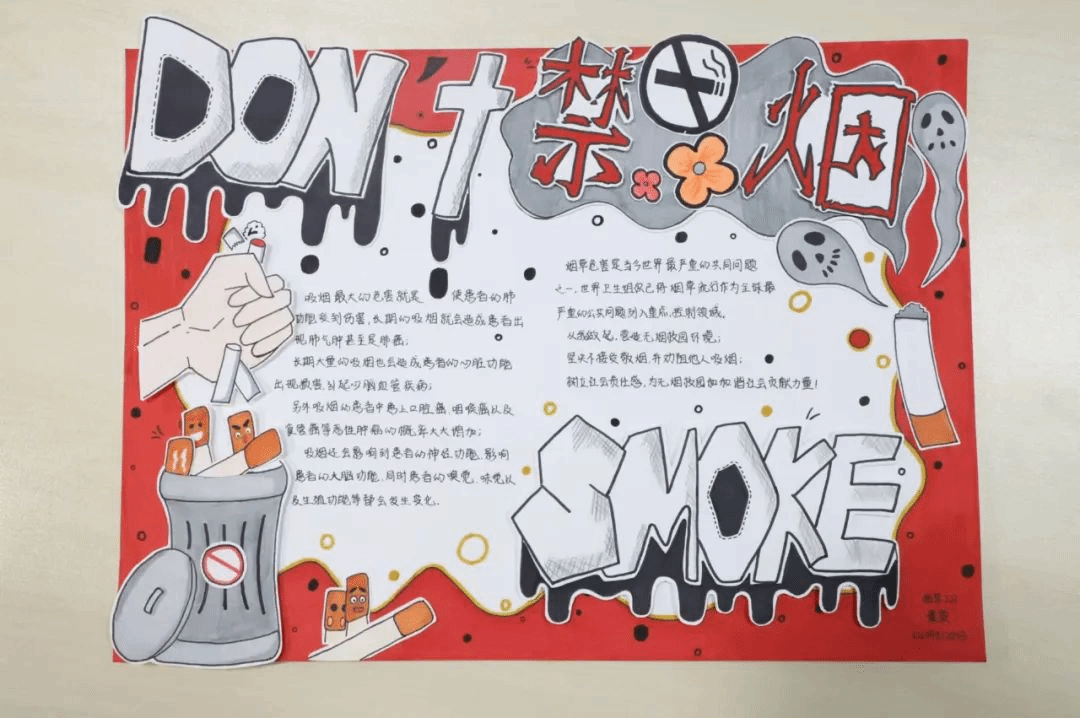 DON't
禁烟
吸烟最大的危害就是 使患者的肺
功能受到伤害,长期的吸烟就会造成患者出
现肺气肿甚至是肺癌;
长期大量的吸烟也会造成患者的心脏功能
出现损害,引起心脑血管疾病;
另外吸烟的患者中患上口腔癌、咽喉癌以及
食管癌等恶性肿瘤的概率大大增加;
吸烟还会影响到患者的神经功能、影响
患者的大脑功能、同时患者的嗅觉、味觉以
及生殖功能等都会发生变化。
烟草危害是当今世界最严重的共同问题
之一,世界卫生组织已将烟草流行作为全球最
严重的公共问题列入重点 领域。
从我做起,营造无烟校园环境;
坚决不接受敬烟,并劝阻他人吸烟;
树立社会责任感,为无烟校园和和谐社会贡献力量!
SMOKE